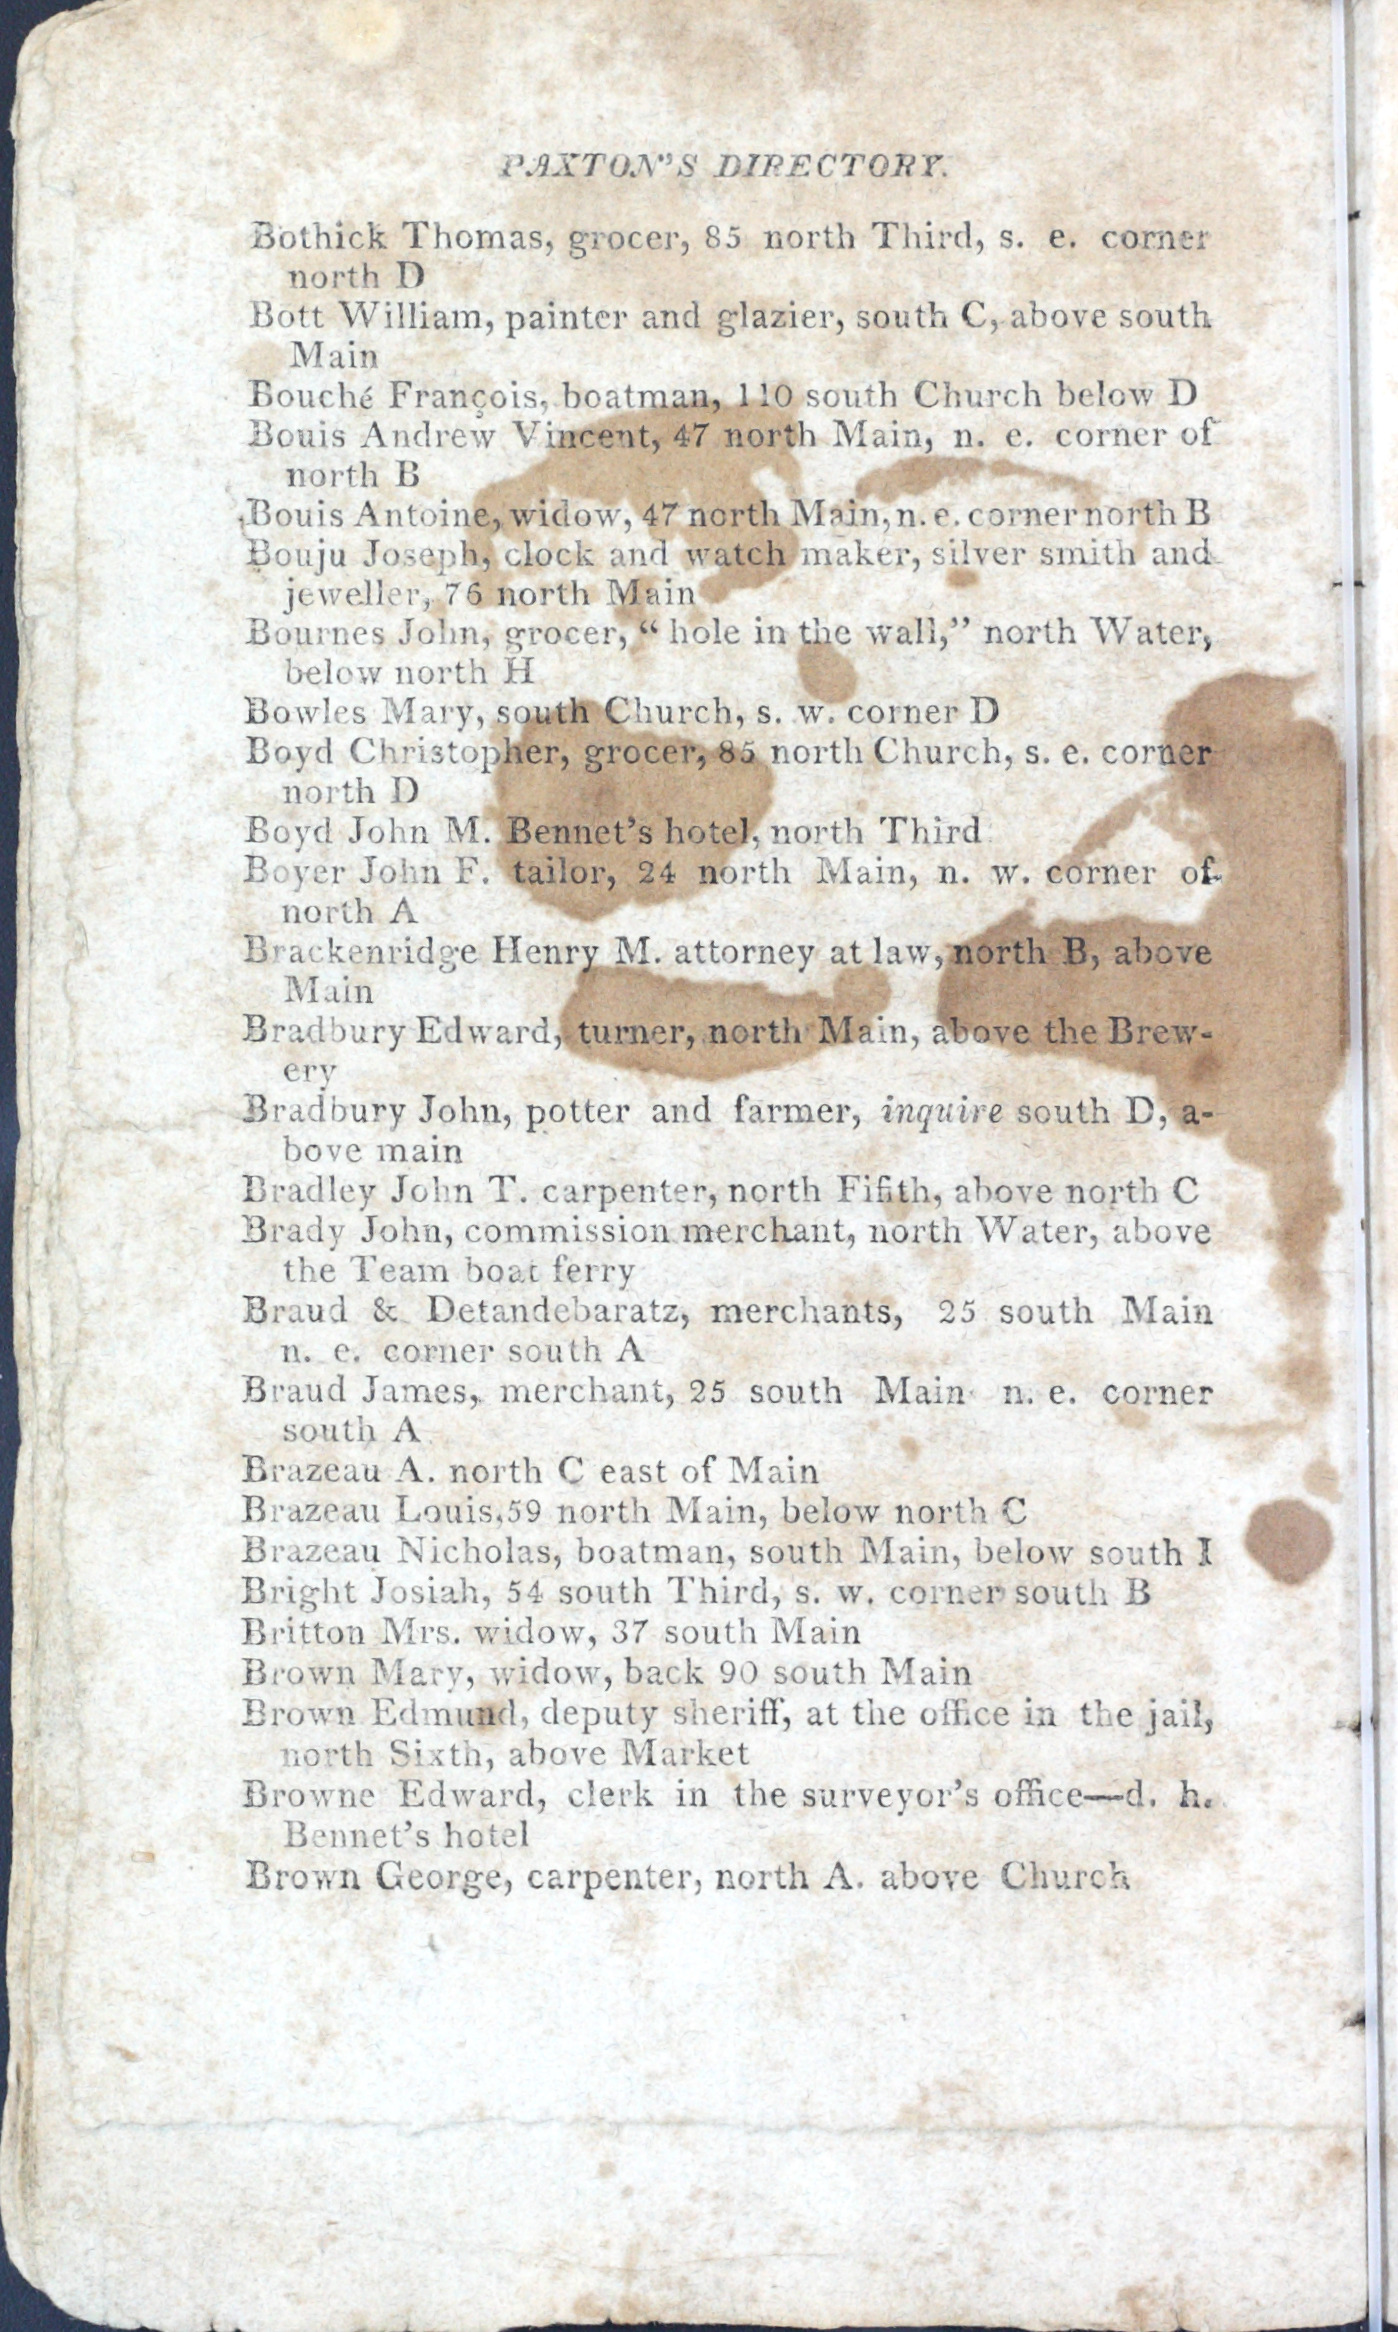 PAXTON'S DIRECTORY.
Bothick Thomas, grocer, 85 north Third, s. e. corner
north D
Bott William, painter and glazier, south C, above south
Main
Bouché François, boatman, 110 south Church below D
Bouis Andrew Vincent, 47 north Main, n. e. corner of
north B
Bouis Antoine, widow, 47 north Main, n. e. corner north B
Bouju Joseph, clock and watch maker, silver smith and
jeweller, 76 north Main
Bournes John, grocer, “ hole in the wall,” north Water,
below north H
Bowles Mary, south Church, s. w. corner D
Boyd Christopher, grocer, 85 north Church, s. e. corner
north D
Boyd John M. Bennet's hotel, north Third
Boyer John F. tailor, 24 north Main, n. w. corner of
north A
Brackenridge Henry M. attorney at law, north B, above
Main
Bradbury Edward, turner, north Main, above the Brew-
ery
Bradbury John, potter and farmer, inquire south D, a-
bove main
Bradley John T. carpenter, north Fifith, above north C
Brady John, commission merchant, north Water, above
the Team boat ferry
Braud & Detandebaratz, merchants, 25 south Main
n. e. corner south A
Braud James, merchant, 25 south Main n. e. corner
south A
Brazeau A. north C east of Main
Brazeau Louis, 59 north Main, below north C
Brazeau Nicholas, boatman, south Main, below south I
Bright Josiah, 54 south Third, s. w. corner south B
Britton Mrs. widow, 37 south Main
Brown Mary, widow, back 90 south Main
Brown Edmund, deputy sheriff, at the office in the jail,
north Sixth, above Market
Browne Edward, clerk in the surveyor's office—d. h.
Bennet's hotel
Brown George, carpenter, north A. above Church